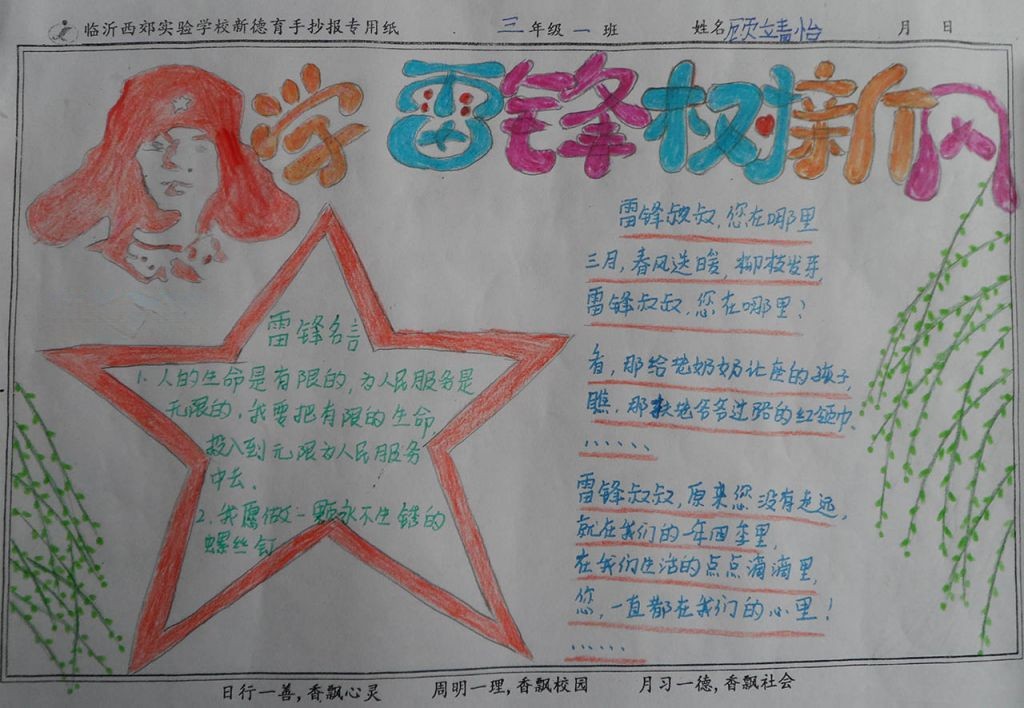 临沂西郊实验学校新德育手抄报专用纸 三年级一班 姓名顾靖怡 月 日
学雷锋树新风
雷锋名言
1. 人的生命是有限的,为人民服务是
无限的,我要把有限的生命
投入到无限为人民服务
中去.
2. 我愿做一颗永不生锈的
螺丝钉
雷锋叔叔,您在哪里
三月,春风送暖,柳枝发芽,
雷锋叔叔,您在哪里?
看,那给老奶奶让座的孩子,
瞧,那扶老爷爷过路的红领巾、
......
雷锋叔叔,原来您没有走远,
就在我们的一年四季里,
在我们生活的点点滴滴里,
您,一直都在我们的心里!
......
日行一善,香飘心灵 周明一理,香飘校园 月习一德,香飘社会